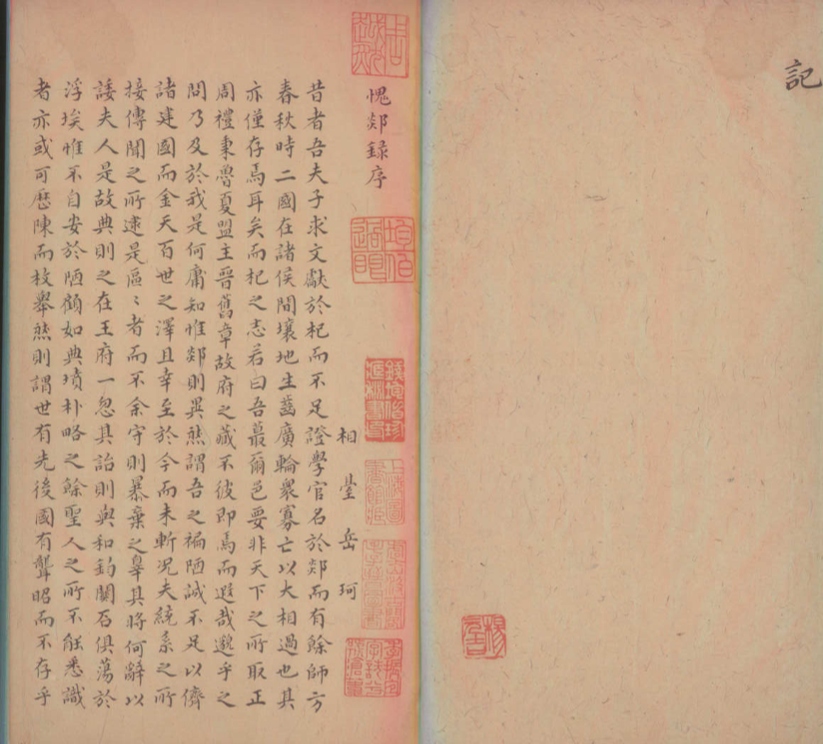 記
愧郯錄序
相臺岳珂
昔者吾夫子求文獻於杞而不足證學官名於郯而有餘師方
春秋時二國在諸侯間壤地生齒廣輪衆寡亡以大相過也其
亦僅存焉耳矣而杞之志若曰吾蕞爾邑要非天下之所取正
周禮秉魯夏盟主晉舊章故府之藏不彼即焉而遐哉邈乎之
問乃及於我是何庸知惟郯則異然謂吾之褊陋誠不足以儕
諸建國而金天百世之澤且幸至於今而未斬況夫統系之所
接傳聞之所逮是區〻者而不余守則暴棄之辠其將何辭以
諉夫人是故典則之在王府一忽其詒則與和鈞關石俱蕩於
浮埃惟不自安於陋顧如典墳朴略之餘聖人之所不能悉識
者亦或可歷陳而枚舉然則謂世有先後國有聾昭而不存乎